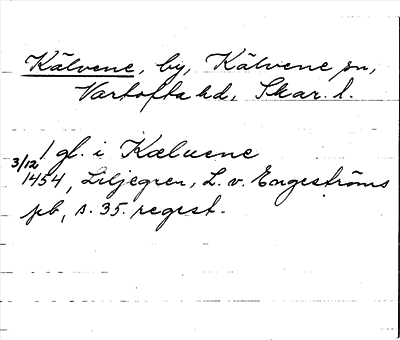 Kälvene, by, Kälvene sn,
Vartofta hd, Skar. l.
1 gl. i Kæluene
3/12 1454, Liljegren, L. v. Engeströms
pb, s. 35. regest.